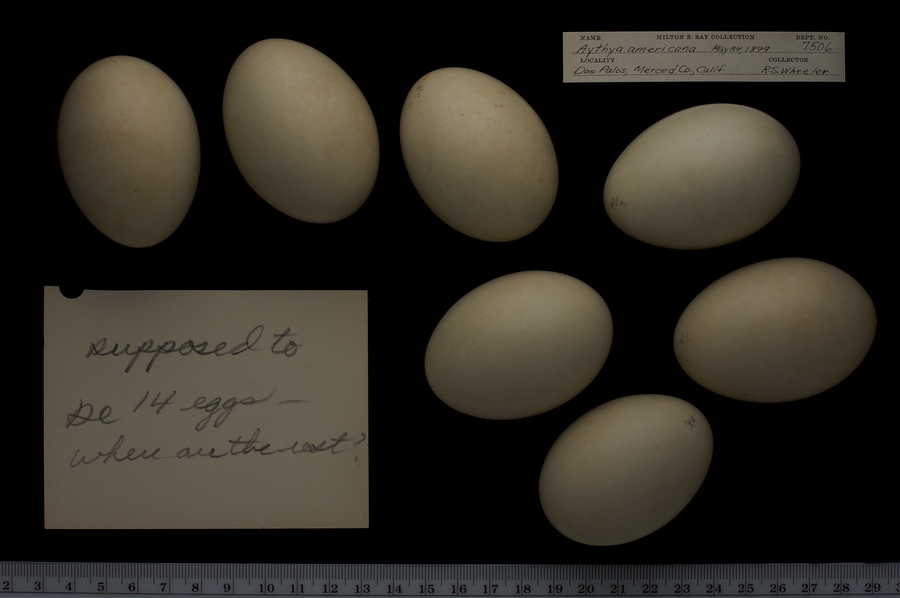 NAME MILTON S. RAY COLLECTION DEPT. NO.
Aythya americana May 24, 1899 7506
LOCALITY COLLECTOR
Dos Palos, Merced Co., Calif R.S. Wheeler
supposed to
be 14 eggs —
where are the rest?
2 3 4 5 6 7 8 9 10 11 12 13 14 15 16 17 18 19 20 21 22 23 24 25 26 27 28 29